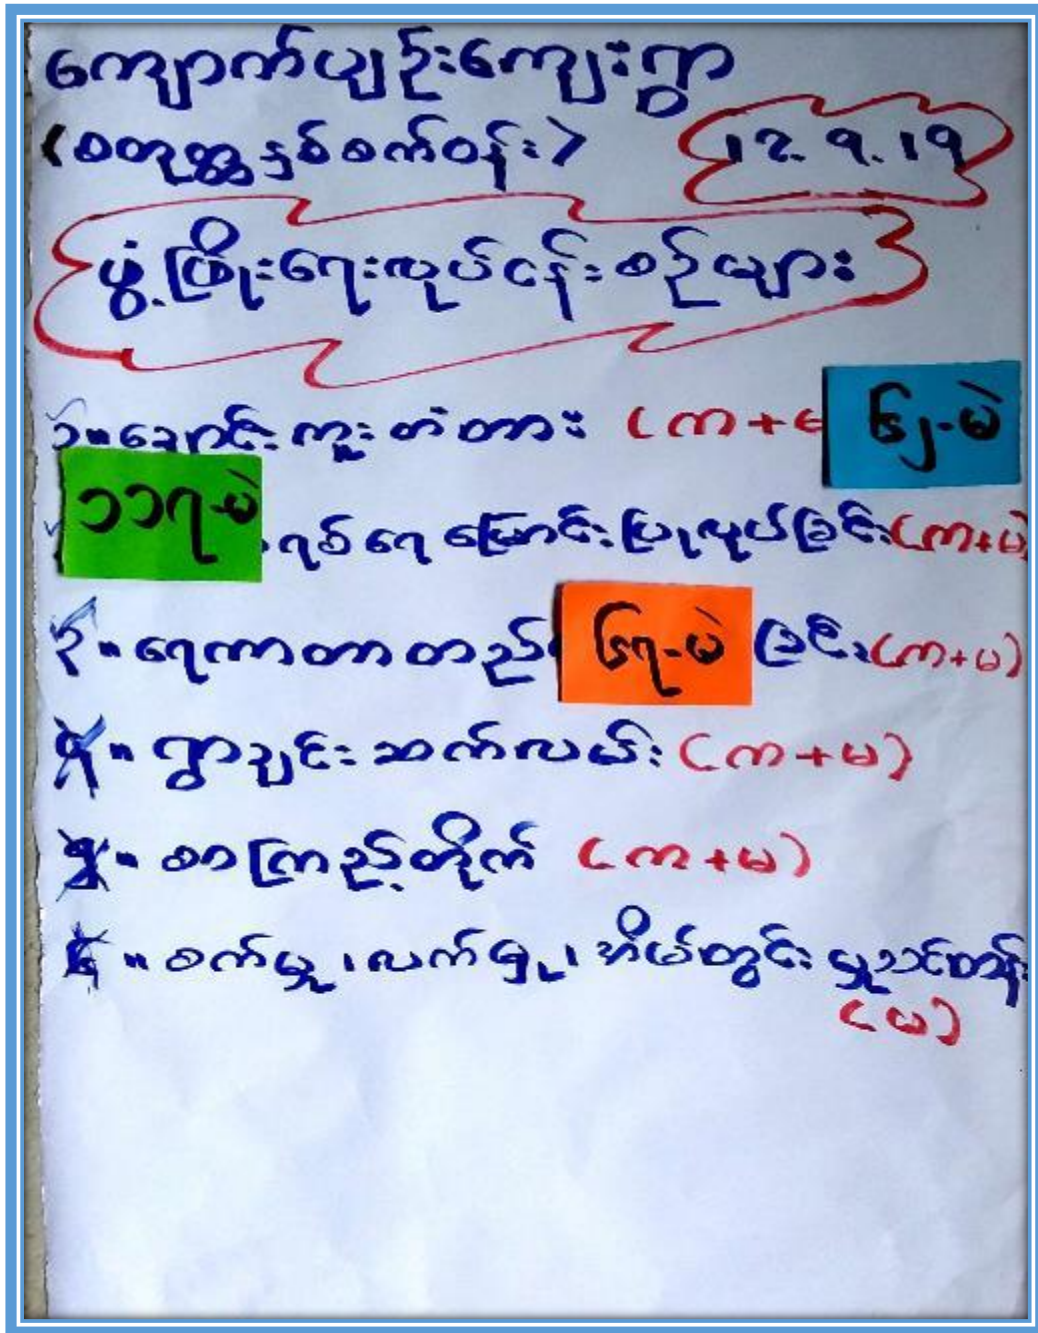 ကျောက်ပျဉ်းကျေးရွာ
(စတုတ္ထနှစ်စက်ဝန်း) 12.9.19
ဖွံ့ဖြိုးရေးလုပ်ငန်းစဉ်များ
၁။ချောင်းကူးတံတား (က+မ
၁၁၇-မဲ
ရစ်ရေမြောင်းပြုလုပ်ခြင်း(က+မ)
၃။ရေကာတာတည် ခြင်း(က+မ)
၄။ရွာချင်းဆက်လမ်း(က+မ)
၅။စာကြည့်တိုက် (က+မ)
၆။စက်မှု၊လက်မှု၊အိမ်တွင်းမှုသင်တန်း
(မ)